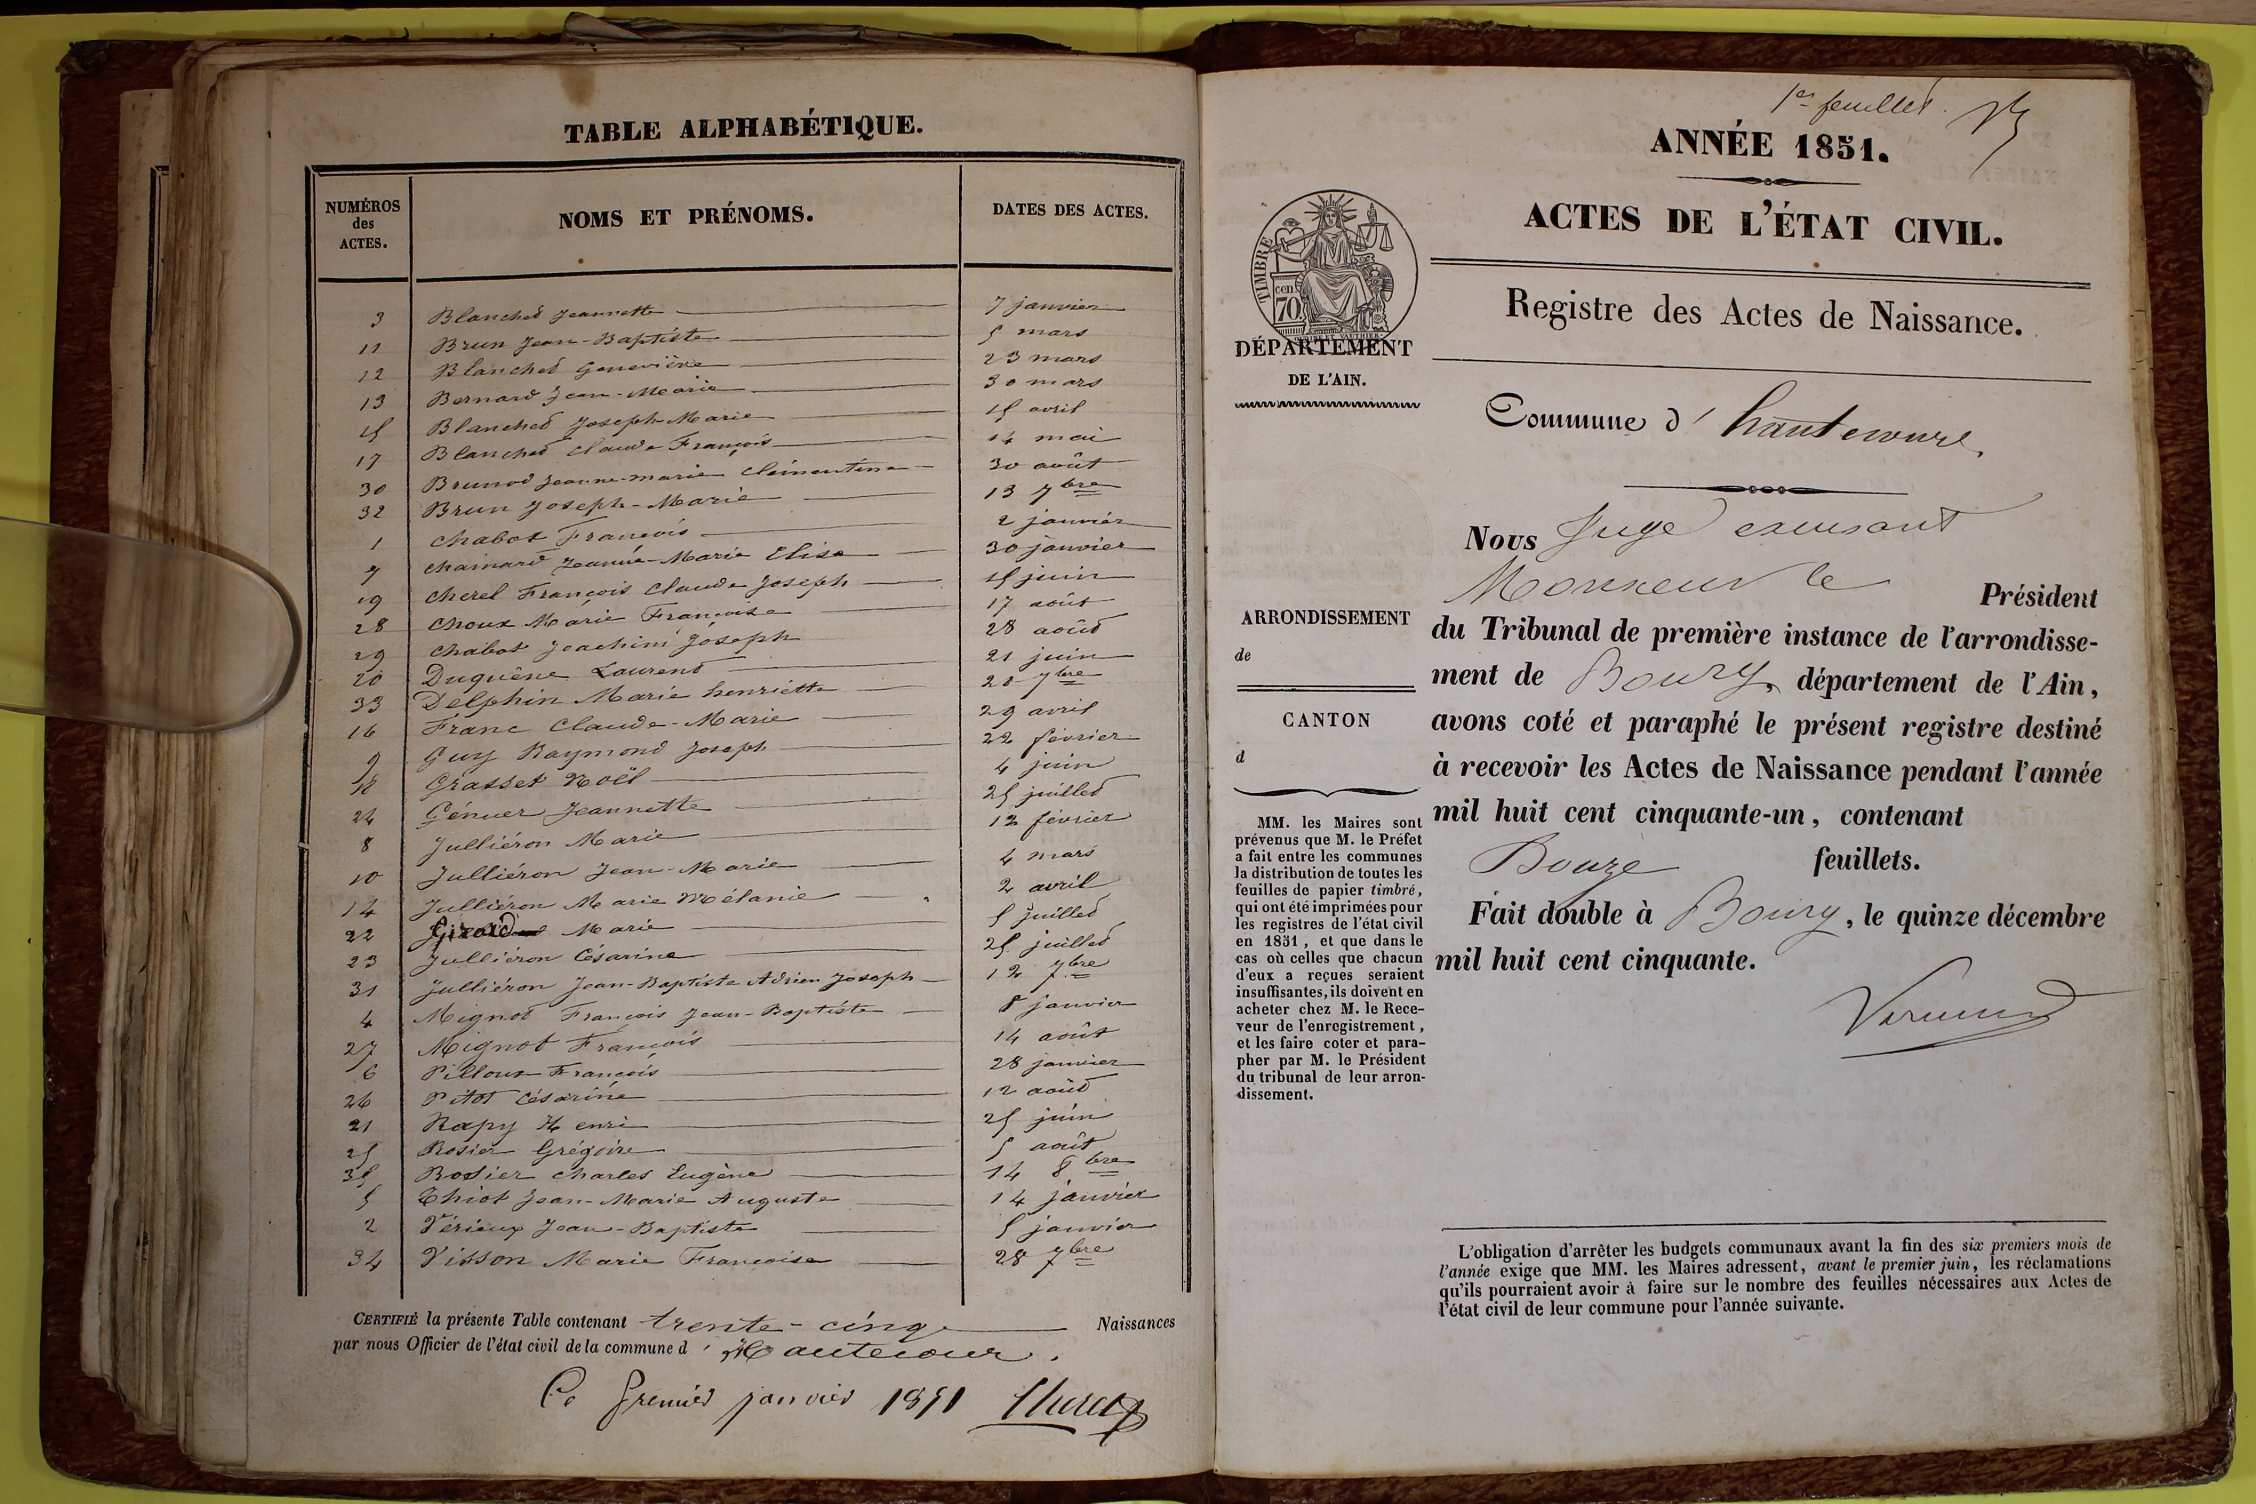 TABLE ALPHABÉTIQUE.
NUMÉROS des ACTES.
NOMS ET PRÉNOMS.
DATES DES ACTES.
3 Blanchet Jeannette 7 janvier
11 Brun Jean-Baptiste 5 mars
12 Blanchet Geneviève 23 mars
13 Bernard Jean-Marie 30 mars
15 Blanchet Joseph-Marie 15 avril
17 Blanchet Claude François 14 mai
30 Brunod Jeanne-marie Clémentine 30 août
32 Brun Joseph-Marie 13 7bre
1 Chabot François 2 janvier
7 Chainard Jeanne-Marie Elise 30 janvier
19 Cherel François Claude Joseph 15 juin
28 Choux Marie Françoise 17 août
29 Chabot Joachim Joseph 28 août
20 Duquêne Laurent 21 juin
33 Delphin Marie henriette 20 7bre
16 Franc Claude-Marie 29 avril
9 Guy Raymond Joseph 22 février
18 Grasset Noël 4 juin
24 Génuer Jeannette 25 juillet
8 Julliéron Marie 12 février
10 Julliéron Jean-Marie 4 mars
14 Julliéron Marie Mélanie 2 avril
22 Girard Marie 5 juillet
23 Julliéron Césarine 25 juillet
31 Julliéron Jean-Baptiste Adrien Joseph 12 7bre
4 Mignot François Jean-Baptiste 8 janvier
27 Mignot François 14 août
6 Pilloux François 28 janvier
26 Pitot Césarine 12 août
21 Rapy Henri 25 juin
25 Rosier Grégoire 5 août
35 Rosier Charles Eugène 14 8bre
5 Thiot Jean-Marie Auguste 14 janvier
2 Vérieux Jean-Baptiste 5 janvier
34 Visson Marie Françoise 28 7bre
CERTIFIÉ la présente Table contenant trente-cinq Naissances
par nous Officier de l'état civil de la commune d' Hautecour.
Ce premier janvier 1851 Cherel
1er feuillet.
ANNÉE 1851.
ACTES DE L'ÉTAT CIVIL.
Registre des Actes de Naissance.
TIMBRE
cen
70
DÉPARTEMENT
DE L'AIN.
Commune d' hautecour
Nous Juge excusant
Monsieur le Président
du Tribunal de première instance de l'arrondisse-
ment de Bourg, département de l'Ain,
avons coté et paraphé le présent registre destiné
à recevoir les Actes de Naissance pendant l'année
mil huit cent cinquante-un, contenant
Douze feuillets.
Fait double à Bourg, le quinze décembre
mil huit cent cinquante.
ARRONDISSEMENT
de
CANTON
d
MM. les Maires sont
prévenus que M. le Préfet
a fait entre les communes
la distribution de toutes les
feuilles de papier timbré,
qui ont été imprimées pour
les registres de l'état civil
en 1851, et que dans le
cas où celles que chacun
d'eux a reçues seraient
insuffisantes, ils doivent en
acheter chez M. le Rece-
veur de l'enregistrement,
et les faire coter et para-
pher par M. le Président
du tribunal de leur arron-
dissement.
L'obligation d'arrêter les budgets communaux avant la fin des six premiers mois de
l'année exige que MM. les Maires adressent, avant le premier juin, les réclamations
qu'ils pourraient avoir à faire sur le nombre des feuilles nécessaires aux Actes de
l'état civil de leur commune pour l'année suivante.